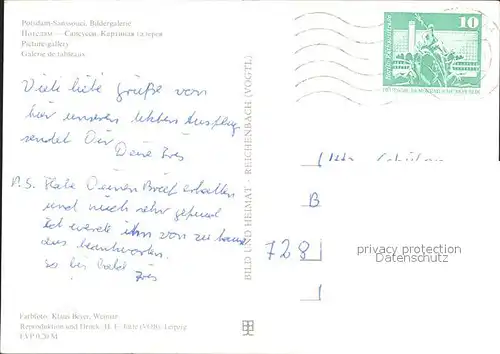 Potsdam-Sanssouci, Bildergalerie
Потсдам — Сансуси. Картинная галерея
Picture-gallery
Galerie de tableaux
10
Viele liebe Grüße von
hier unserem letzten Ausflug
sendet Dir
Deine Ines
P.S. Habe Deinen Brief erhalten
und mich sehr gefreut
Ich werde ihn von zu hause
aus beantworten.
so bis bald
Ines
BILD UND HEIMAT - REICHENBACH (VOGTL)
B
728
privacy protection
Datenschutz
Farbfoto: Klaus Beyer, Weimar
Reproduktion und Druck: H. F. Jütte (VOB), Leipzig
EVP 0,20 M